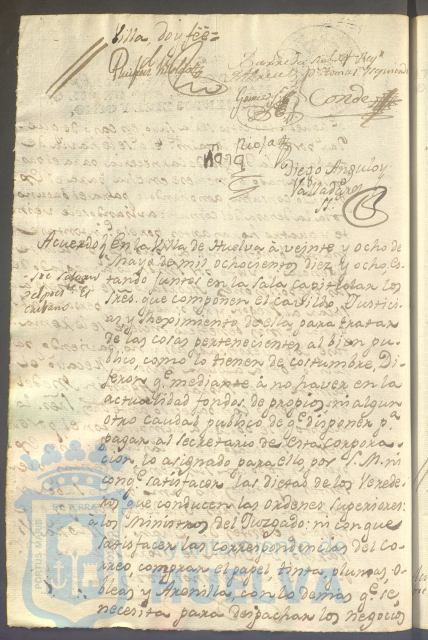 Villa, doy fée=
Conde
Diego Anguloy
Valladares
Acuerdo} En la Villa de Huelva à veinte y ocho de
Mayo de mil ochocientos diez y ocho, es-
tando juntos en la sala capitular los
Sres. que componen el Cavildo, Justici-
as y Rexmiento de ella, para tratar
de las cosas pertenecientes al bien pu-
blico, como lo tienen de costumbre, Di-
jeron qe. mediante à no haver en la
actualidad fondos de propios, ni algun
otro caudal publico de qe. disponer pa.
pagar al Secretario de esta Corpora-
cion lo asignado para ello por S. M. ni
conqe. satisfacer las dietas de los Verede-
ros que conducen las ordenes superiores:
à los Ministros del Juzgado: ni con que
satisfacer las correspondencias del Co-
rreo, comprar el papel, tinta, plumas, o-
bleas y Arenilla, con lo demas qe. se
necesita para despachar los negocios